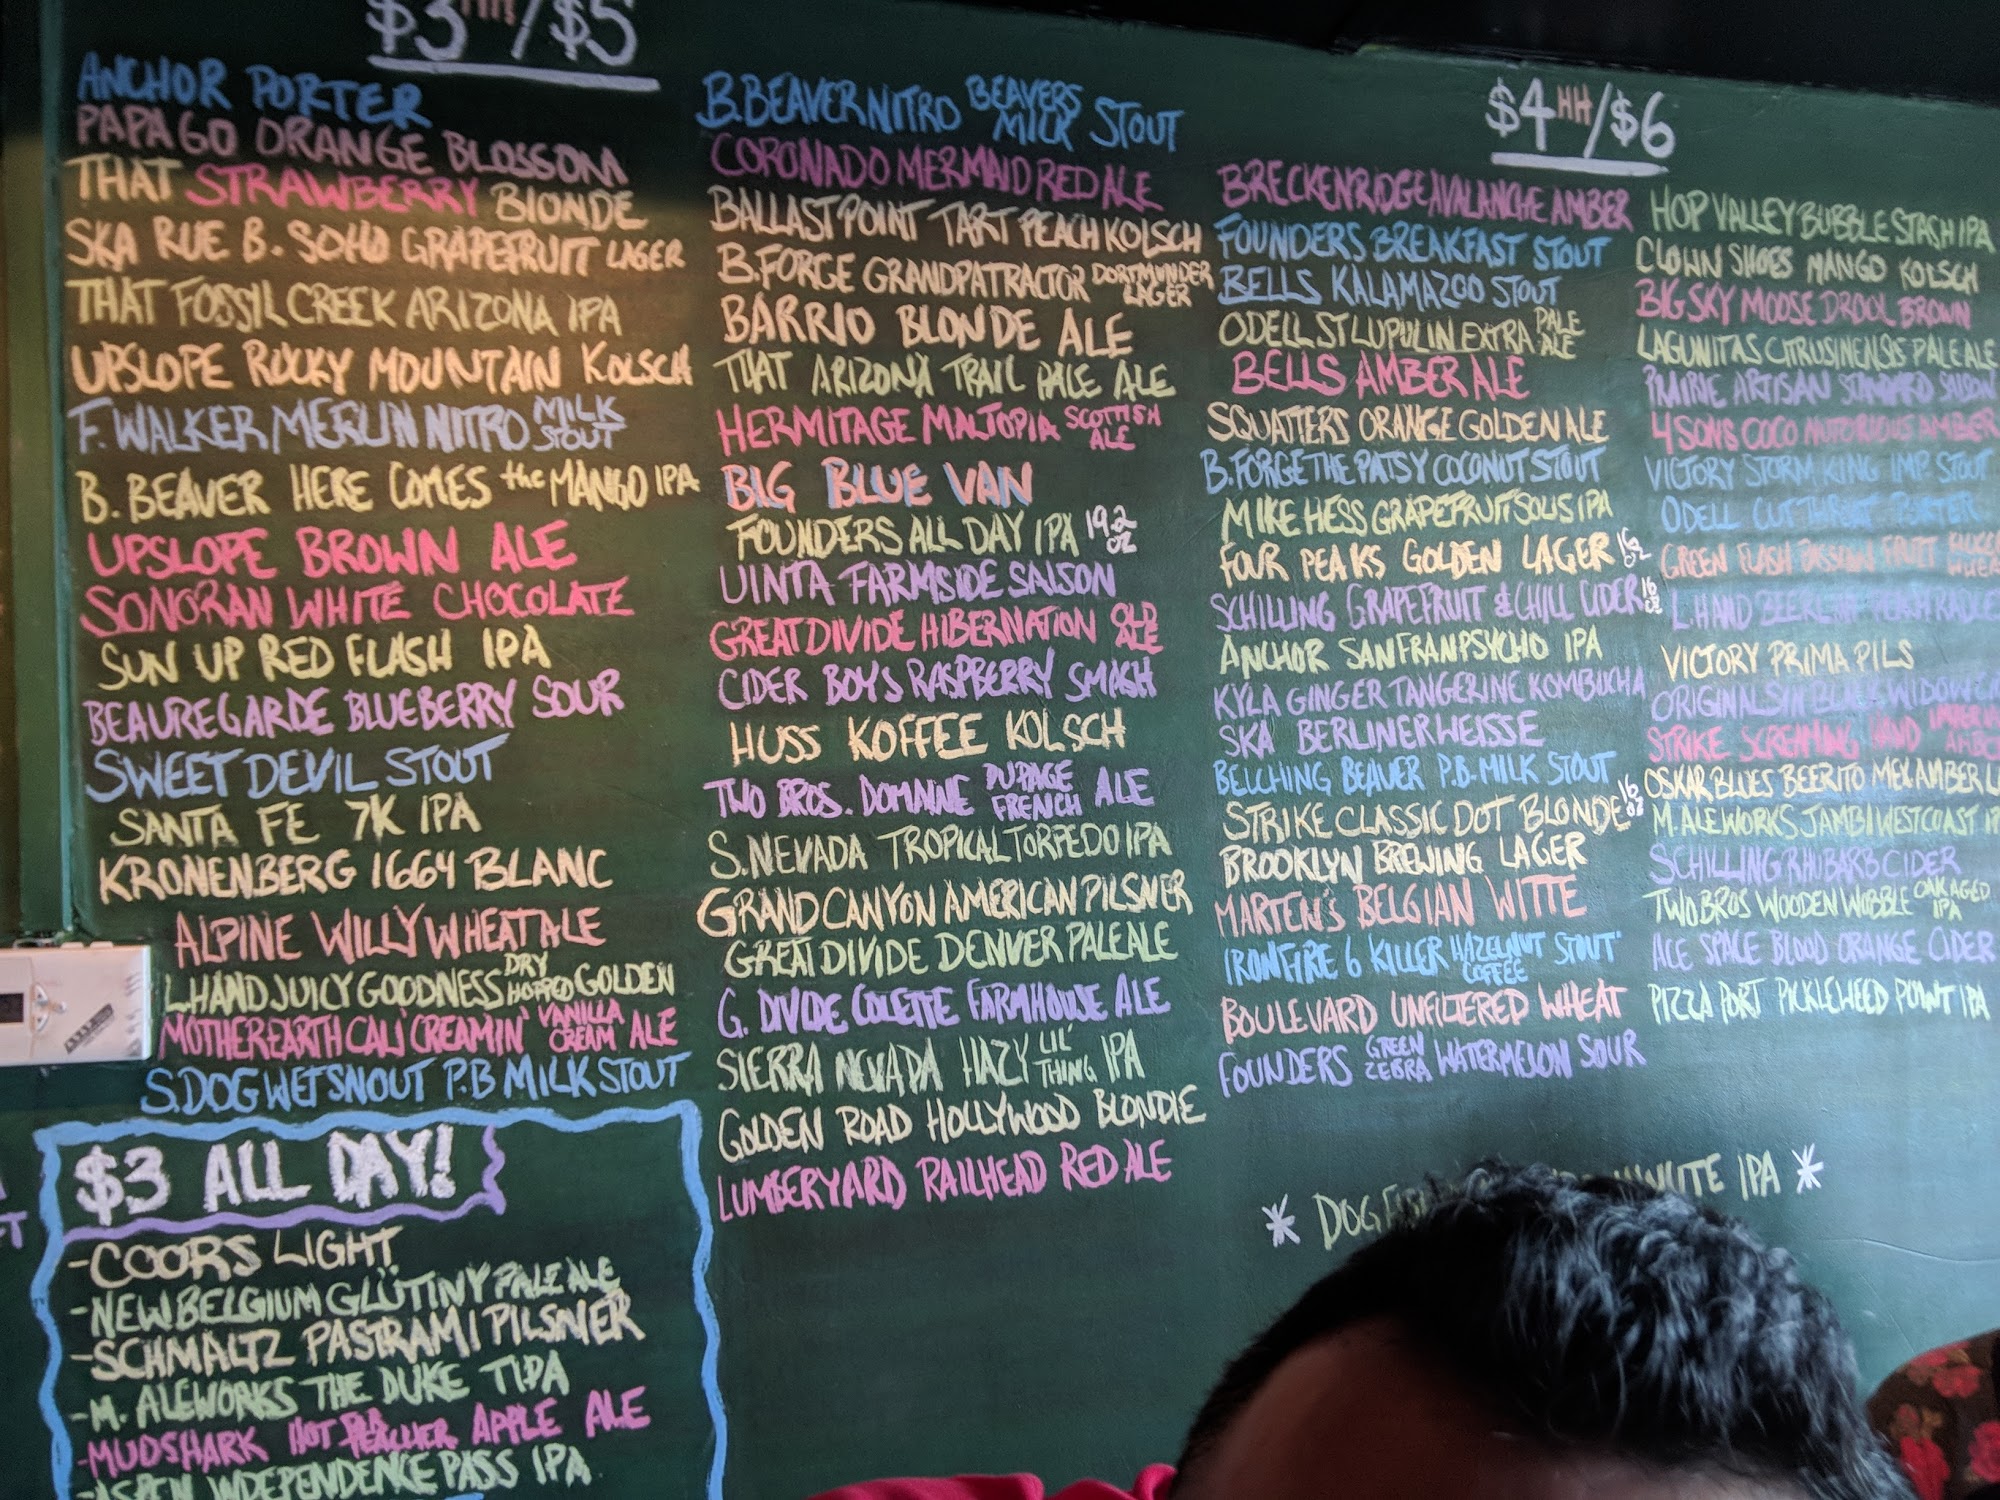 $3 HH!/$5
ANCHOR PORTER
PAPAGO ORANGE BLOSSOM
THAT STRAWBERRY BLONDE
SKA RUE B. SOHO GRAPEFRUIT LAGER
THAT FOSSIL CREEK ARIZONA IPA
UPSLOPE ROCKY MOUNTAIN KOLSCH
F. WALKER MERLIN NITRO MILK STOUT
B. BEAVER HERE COMES the MANGO IPA
UPSLOPE BROWN ALE
SONORAN WHITE CHOCOLATE
SUN UP RED FLASH IPA
BEAUREGARDE BLUEBERRY SOUR
SWEET DEVIL STOUT
SANTA FE 7K IPA
KRONENBERG 1664 BLANC
ALPINE WILLY WHEAT ALE
L.HAND JUICY GOODNESS DRY HOPPED GOLDEN
MOTHER EARTH CALI CREAMIN' VANILLA CREAM ALE
S.DOG WET SNOUT P.B MILK STOUT
$3 ALL DAY!
-COORS LIGHT
-NEW BELGIUM GLÜTINY PALE ALE
-SCHMALTZ PASTRAMI PILSNER
-M. ALEWORKS THE DUKE
-MUDSHARK HOT APPLE ALE
-ASPEN INDEPENDENCE PASS IPA
B.BEAVER NITRO BEAVERS MILK STOUT
CORONADO MERMAID RED ALE
BALLAST POINT TART PEACH KOLSCH
B.FORGE GRANDPA TRACTOR DORTMUNDER LAGER
BARRIO BLONDE ALE
THAT ARIZONA TRAIL PALE ALE
HERMITAGE MALTOPIA SCOTTISH ALE
BIG BLUE VAN
FOUNDERS ALL DAY IPA 19.2 OZ
UINTA FARMSIDE SAISON
GREAT DIVIDE HIBERNATION OLD ALE
CIDER BOYS RASPBERRY SMASH
HUSS KOFFEE KOLSCH
TWO BROS. DOMAINE DUPAGE FRENCH ALE
S.NEVADA TROPICAL TORPEDO IPA
GRAND CANYON AMERICAN PILSNER
GREAT DIVIDE DENVER PALE ALE
G. DIVIDE COLETTE FARMHOUSE ALE
SIERRA NEVADA HAZY LIL' THING IPA
GOLDEN ROAD HOLLYWOOD BLONDIE
LUMBERYARD RAILHEAD RED ALE
$4 HH/$6
BRECKENRIDGE AVALANCHE AMBER
FOUNDERS BREAKFAST STOUT
BELLS KALAMAZOO STOUT
ODELL ST LUPULIN EXTRA PALE ALE
BELLS AMBER ALE
SQUATTERS ORANGE GOLDEN ALE
B.FORGE THE PATSY COCONUT STOUT
MIKE HESS GRAPEFRUIT SOLIS IPA
FOUR PEAKS GOLDEN LAGER 16 OZ
SCHILLING GRAPEFRUIT & CHILL CIDER 16 OZ
ANCHOR SANFRANPSYCHO IPA
KYLA GINGER TANGERINE KOMBUCHA
SKA BERLINERWEISSE
BELCHING BEAVER P.B. MILK STOUT
STRIKE CLASSIC DOT BLONDE 16 OZ
BROOKLYN BREWING LAGER
MARTEN'S BELGIAN WITTE
IRONFIRE 6 KILLER HAZELNUT COFFEE STOUT
BOULEVARD UNFILTERED WHEAT
FOUNDERS GREEN ZEBRA WATERMELON SOUR
HOP VALLEY BUBBLE STASH IPA
CLOWN SHOES MANGO KOLSCH
BIG SKY MOOSE DROOL BROWN
LAGUNITAS CITRUSINENSIS PALE ALE
PRAIRIE ARTISAN STANDARD SAISON
4 SONS COCO NOTORIOUS AMBER
VICTORY STORM KING IMP. STOUT
ODELL CUTTHROAT PORTER
GREEN FLASH PASSION FRUIT
L.HAND
VICTORY PRIMA PILS
ORIGINAL SIN BLACK WIDOW
STRIKE SCREAMING HAND
OSKAR BLUES BEERITO MEX AMBER
M. ALEWORKS JAMBI WEST COAST
SCHILLING RHUBARB CIDER
TWO BROS WOODEN WOBBLE OAK AGED IPA
ACE SPACE BLOOD ORANGE CIDER
PIZZA PORT PICKLEWEED POINT IPA
* DOG MINUTE IPA *